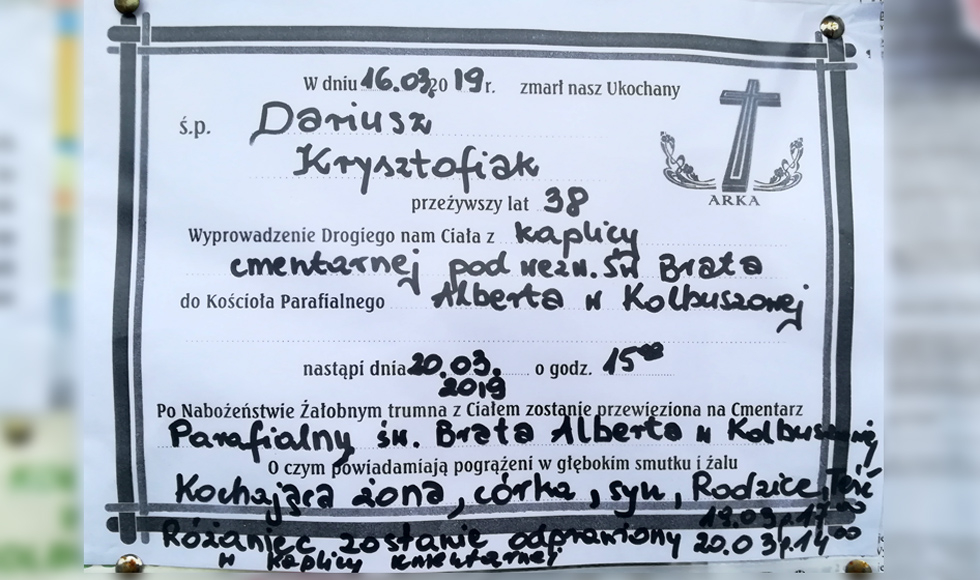 W dniu 16.03.2019 r. zmarł nasz Ukochany
ś.p. Dariusz
Krysztofiak
ARKA
przeżywszy lat 38
Wyprowadzenie Drogiego nam Ciała z kaplicy
cmentarnej pod wezw. św Brata
do Kościoła Parafialnego Alberta w Kolbuszowej
nastąpi dnia 20.03. o godz. 15⁰⁰
2019
Po Nabożeństwie Żałobnym trumna z Ciałem zostanie przewieziona na Cmentarz
Parafialny św. Brata Alberta w Kolbuszowej
O czym powiadamiają pogrążeni w głębokim smutku i żalu
Kochająca żona, córka, syn, Rodzice, Teść
19.03 g. 17⁰⁰
Różaniec zostanie odprawiony 20.03 g. 14⁰⁰
w kaplicy cmentarnej